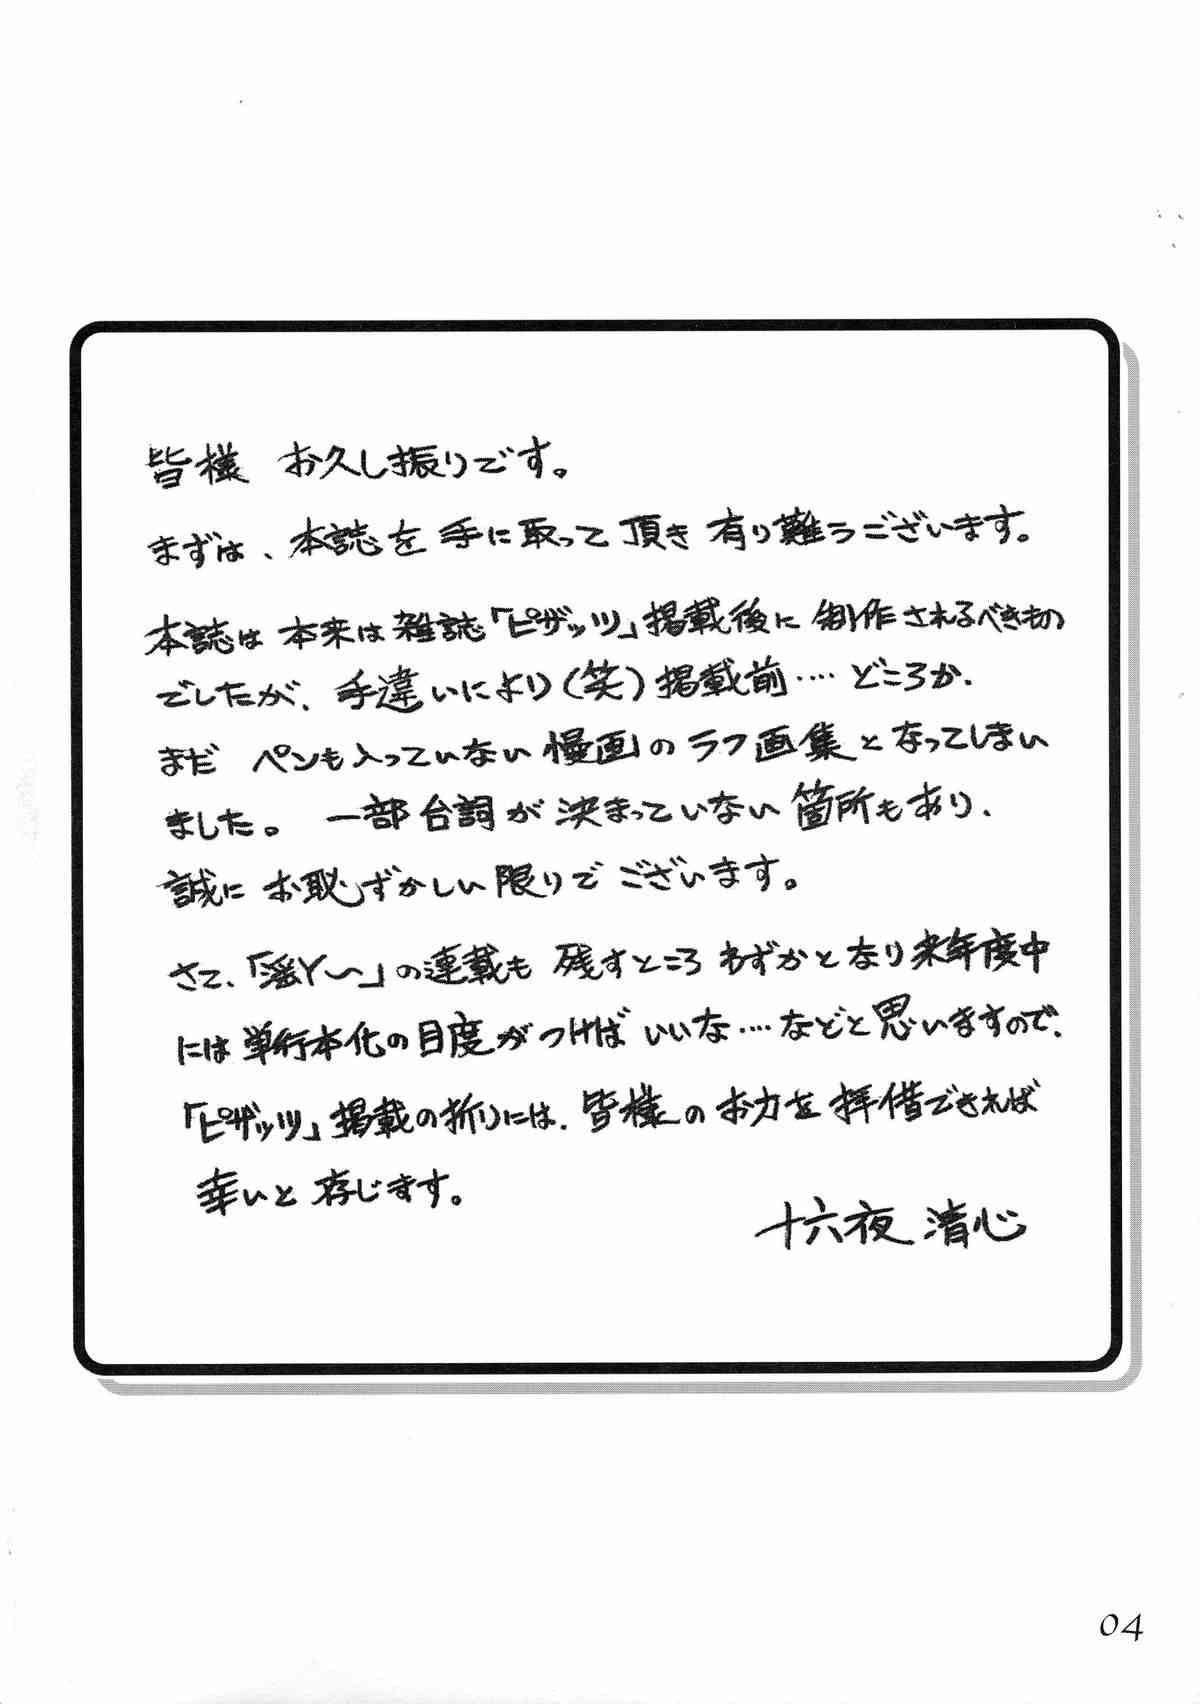 皆様 お久し振りです。
まずは、本誌を手に取って頂き有り難うございます。
本誌は本来は雑誌「ピザッツ」掲載後に制作されるべきもの
でしたが、手違いにより(笑)掲載前‥‥どころか、
まだ ペンも入っていない漫画のラフ画集となってしまい
ました。一部台詞が決まっていない箇所もあり、
誠にお恥ずかしい限りでございます。
さて、「淫Y〜」の連載も残すところわずかとなり来年度中
には単行本化の目度がつけばいいな‥‥などと思いますので、
「ピザッツ」掲載の折りには、皆様のお力を拝借できれば
幸いと存じます。
十六夜 清心
04